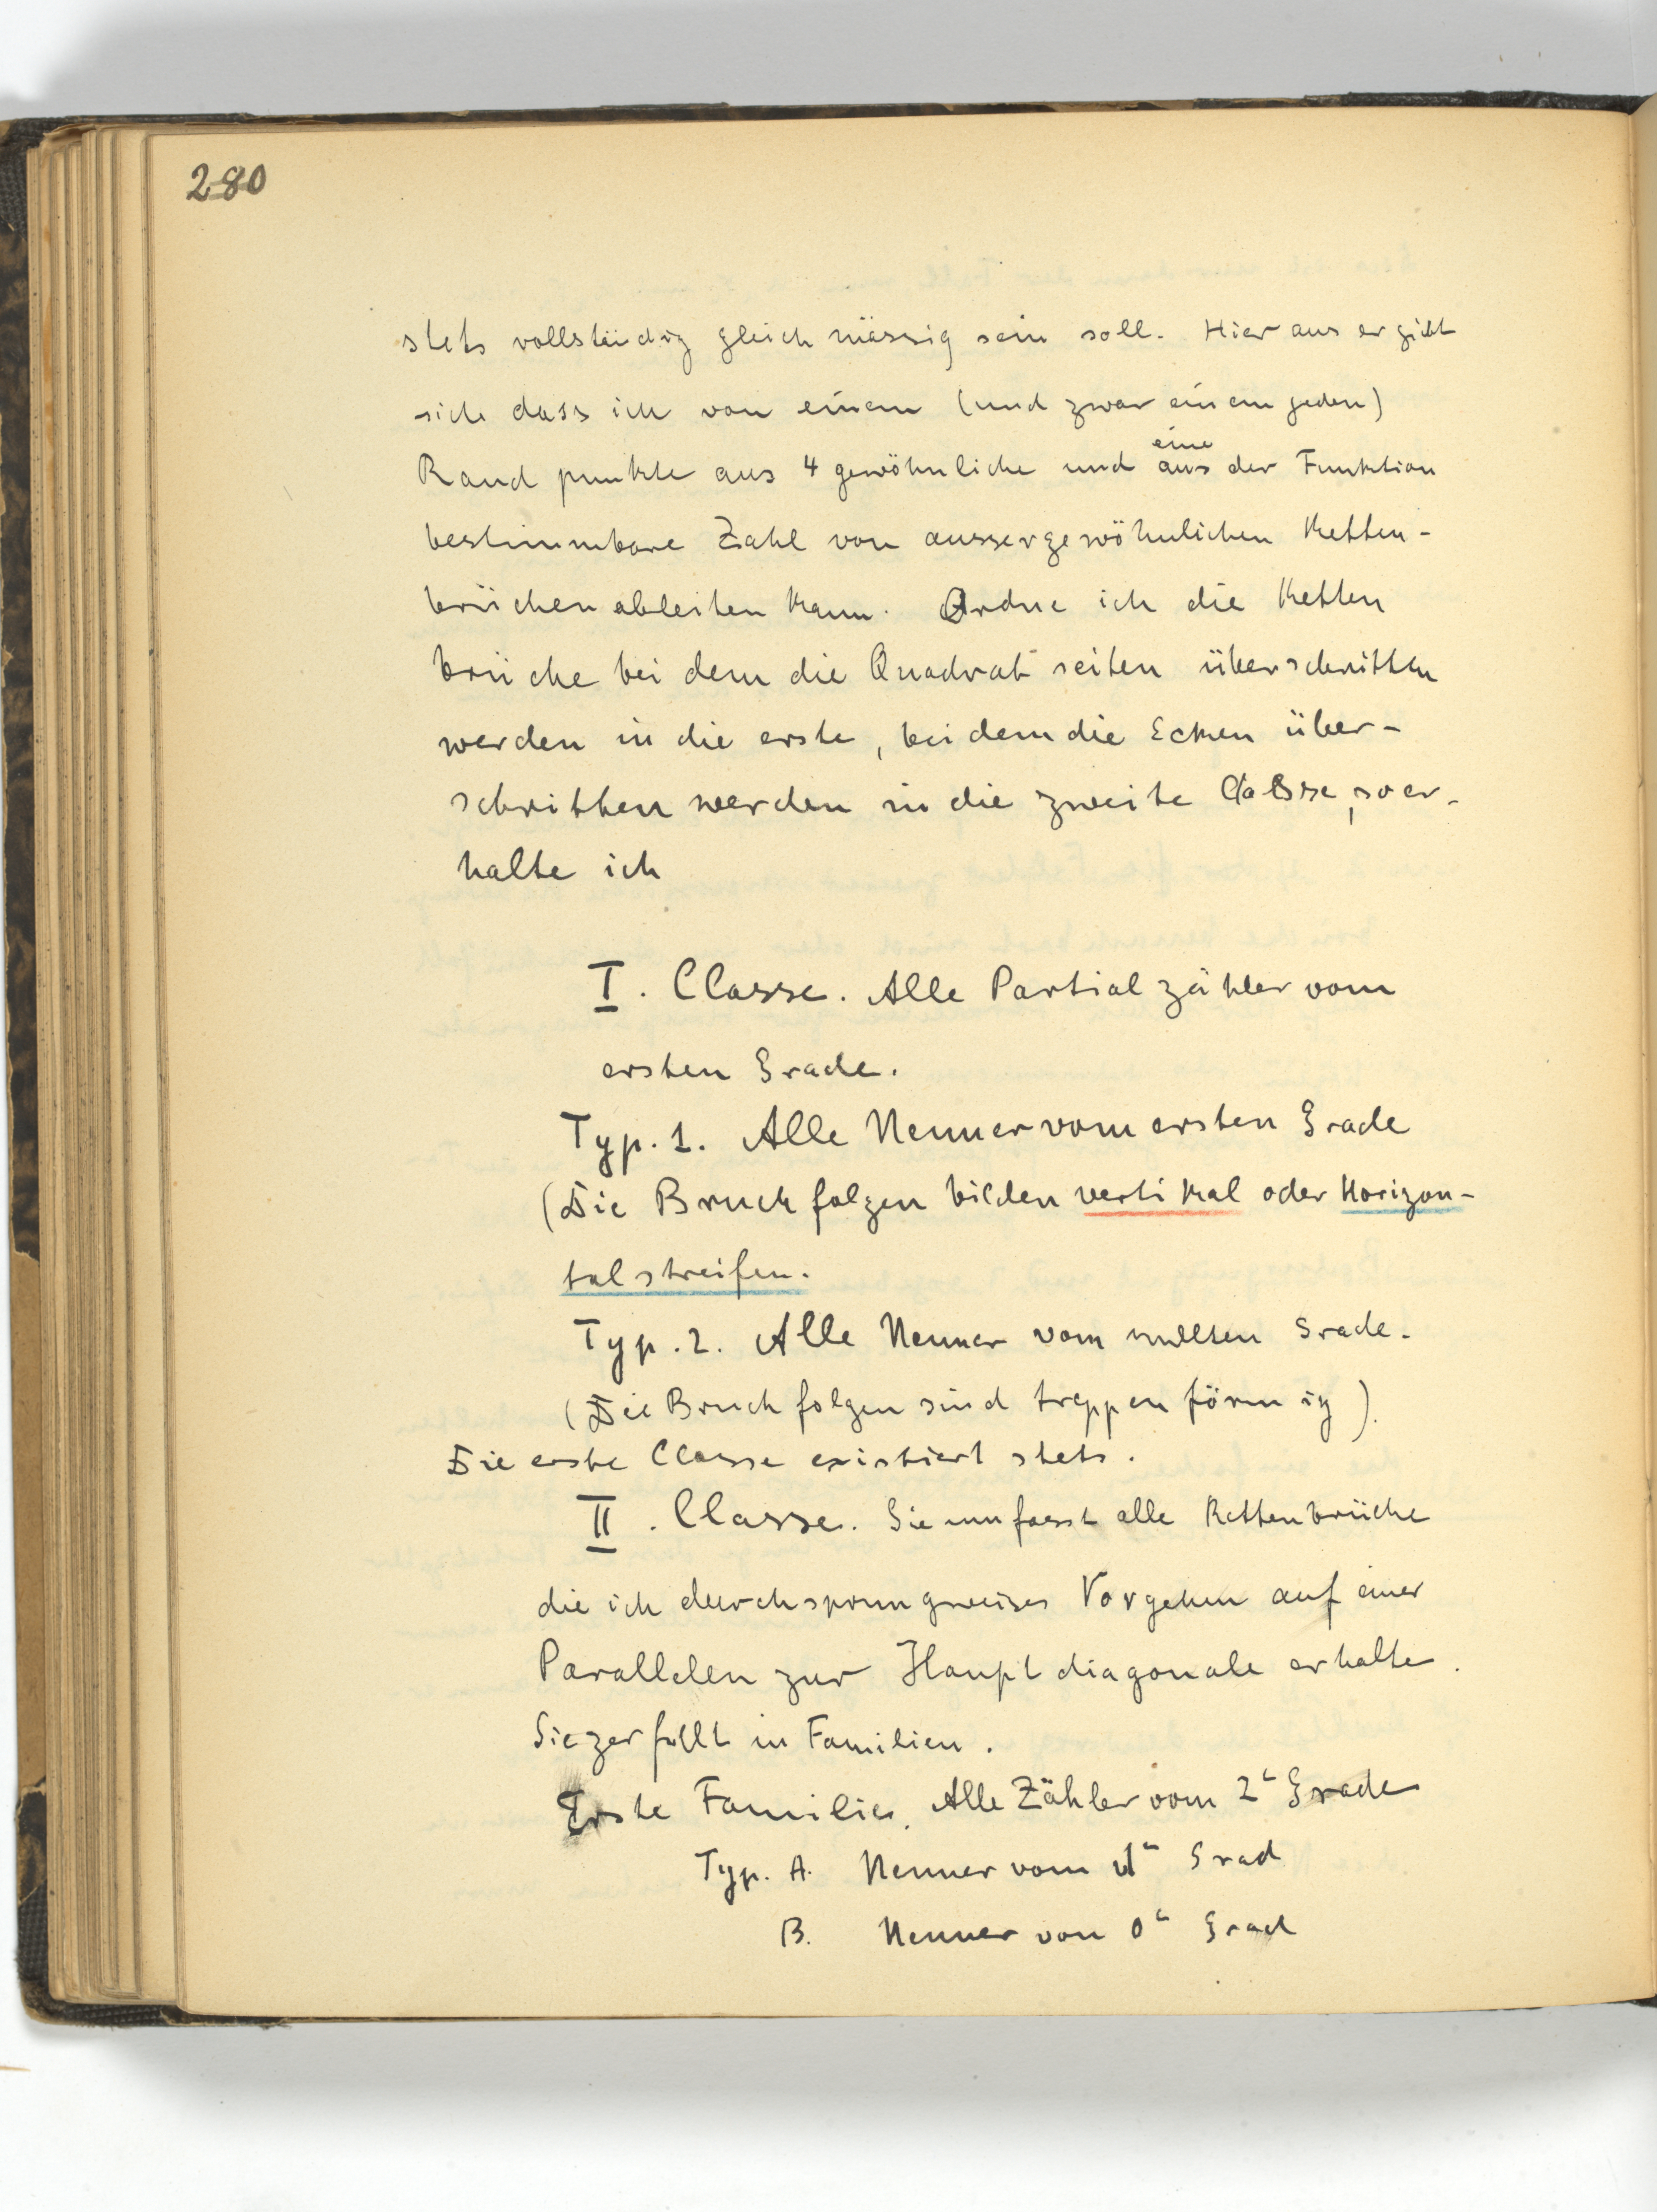 280
stets vollständig gleichmässig sein soll. Hieraus ergibt
sich dass ich von einem (und zwar einem jeden)
Randpunkte aus 4 gewöhnliche und eine aus der Funktion
bestimmbare Zahl von aussergewöhnlichen Ketten-
brüchen ableiten kann. Ordne ich die Ketten
brüche bei dem die Quadratseiten überschritten
werden in die erste, bei dem die Ecken über-
schritten werden in die zweite Classe, so er-
halte ich
I. Classe. Alle Partialzähler vom
ersten Grade.
Typ. 1. Alle Nenner vom ersten Grade
(Die Bruchfolgen bilden vertikal oder Horizon-
talstreifen.
Typ. 2. Alle Nenner vom nullten Grade.
(Die Bruchfolgen sind treppenförmig).
Die erste Classe existiert stets.
II. Classe. Sie umfasst alle Kettenbrüche
die ich durch sprungweises Vorgehen auf einer
Parallelen zur Hauptdiagonale erhalte.
Sie zerfällt in Familien.
Erste Familie. Alle Zähler vom 2ᵗ Grade
Typ. A. Nenner vom 1ᵗ Grad
B. Nenner von 0ᵗ Grad